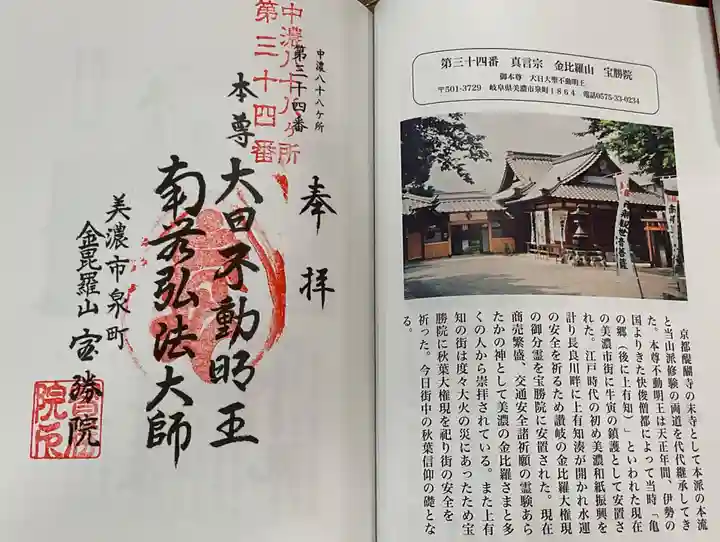 奉拝
中濃八十八ヶ所
第三十四番
中濃八十八ヶ所
第三十四番
本尊
大日不動明王
南無弘法大師
美濃市泉町
金毘羅山 宝勝院
第三十四番 真言宗 金比羅山 宝勝院
御本尊 大日大聖不動明王
〒501-3729 岐阜県美濃市泉町1864 電話0575-33-0234
京都醍醐寺の末寺として本派の本流
と当山派修験の両道を代代継承してき
た。本尊不動明王は天正年間、伊勢の
国よりきた快俊僧都によって当時「亀
の郷（後に上有知）」といわれた現在
の美濃市街に牛寅の鎮護として安置さ
れた。江戸時代の初め美濃和紙振興を
計り長良川畔に上有知湊が開かれ水運
の安全を祈るため讃岐の金比羅大権現
の御分霊を宝勝院に安置された。現在
商売繁盛、交通安全諸祈願の霊験あら
たかの神として美濃の金比羅さまと多
くの人から崇拝されている。また上有
知の街は度々大火の災にあったため宝
勝院に秋葉大権現を祀り街の安全を
祈った。今日街中の秋葉信仰の礎とな
る。